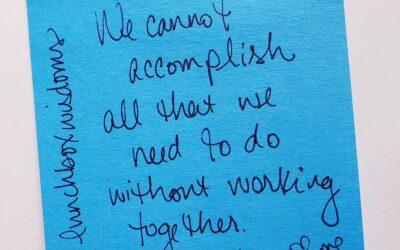 We cannot
accomplish
all that we
need to do
without working
together.
lunchboxwisdoms